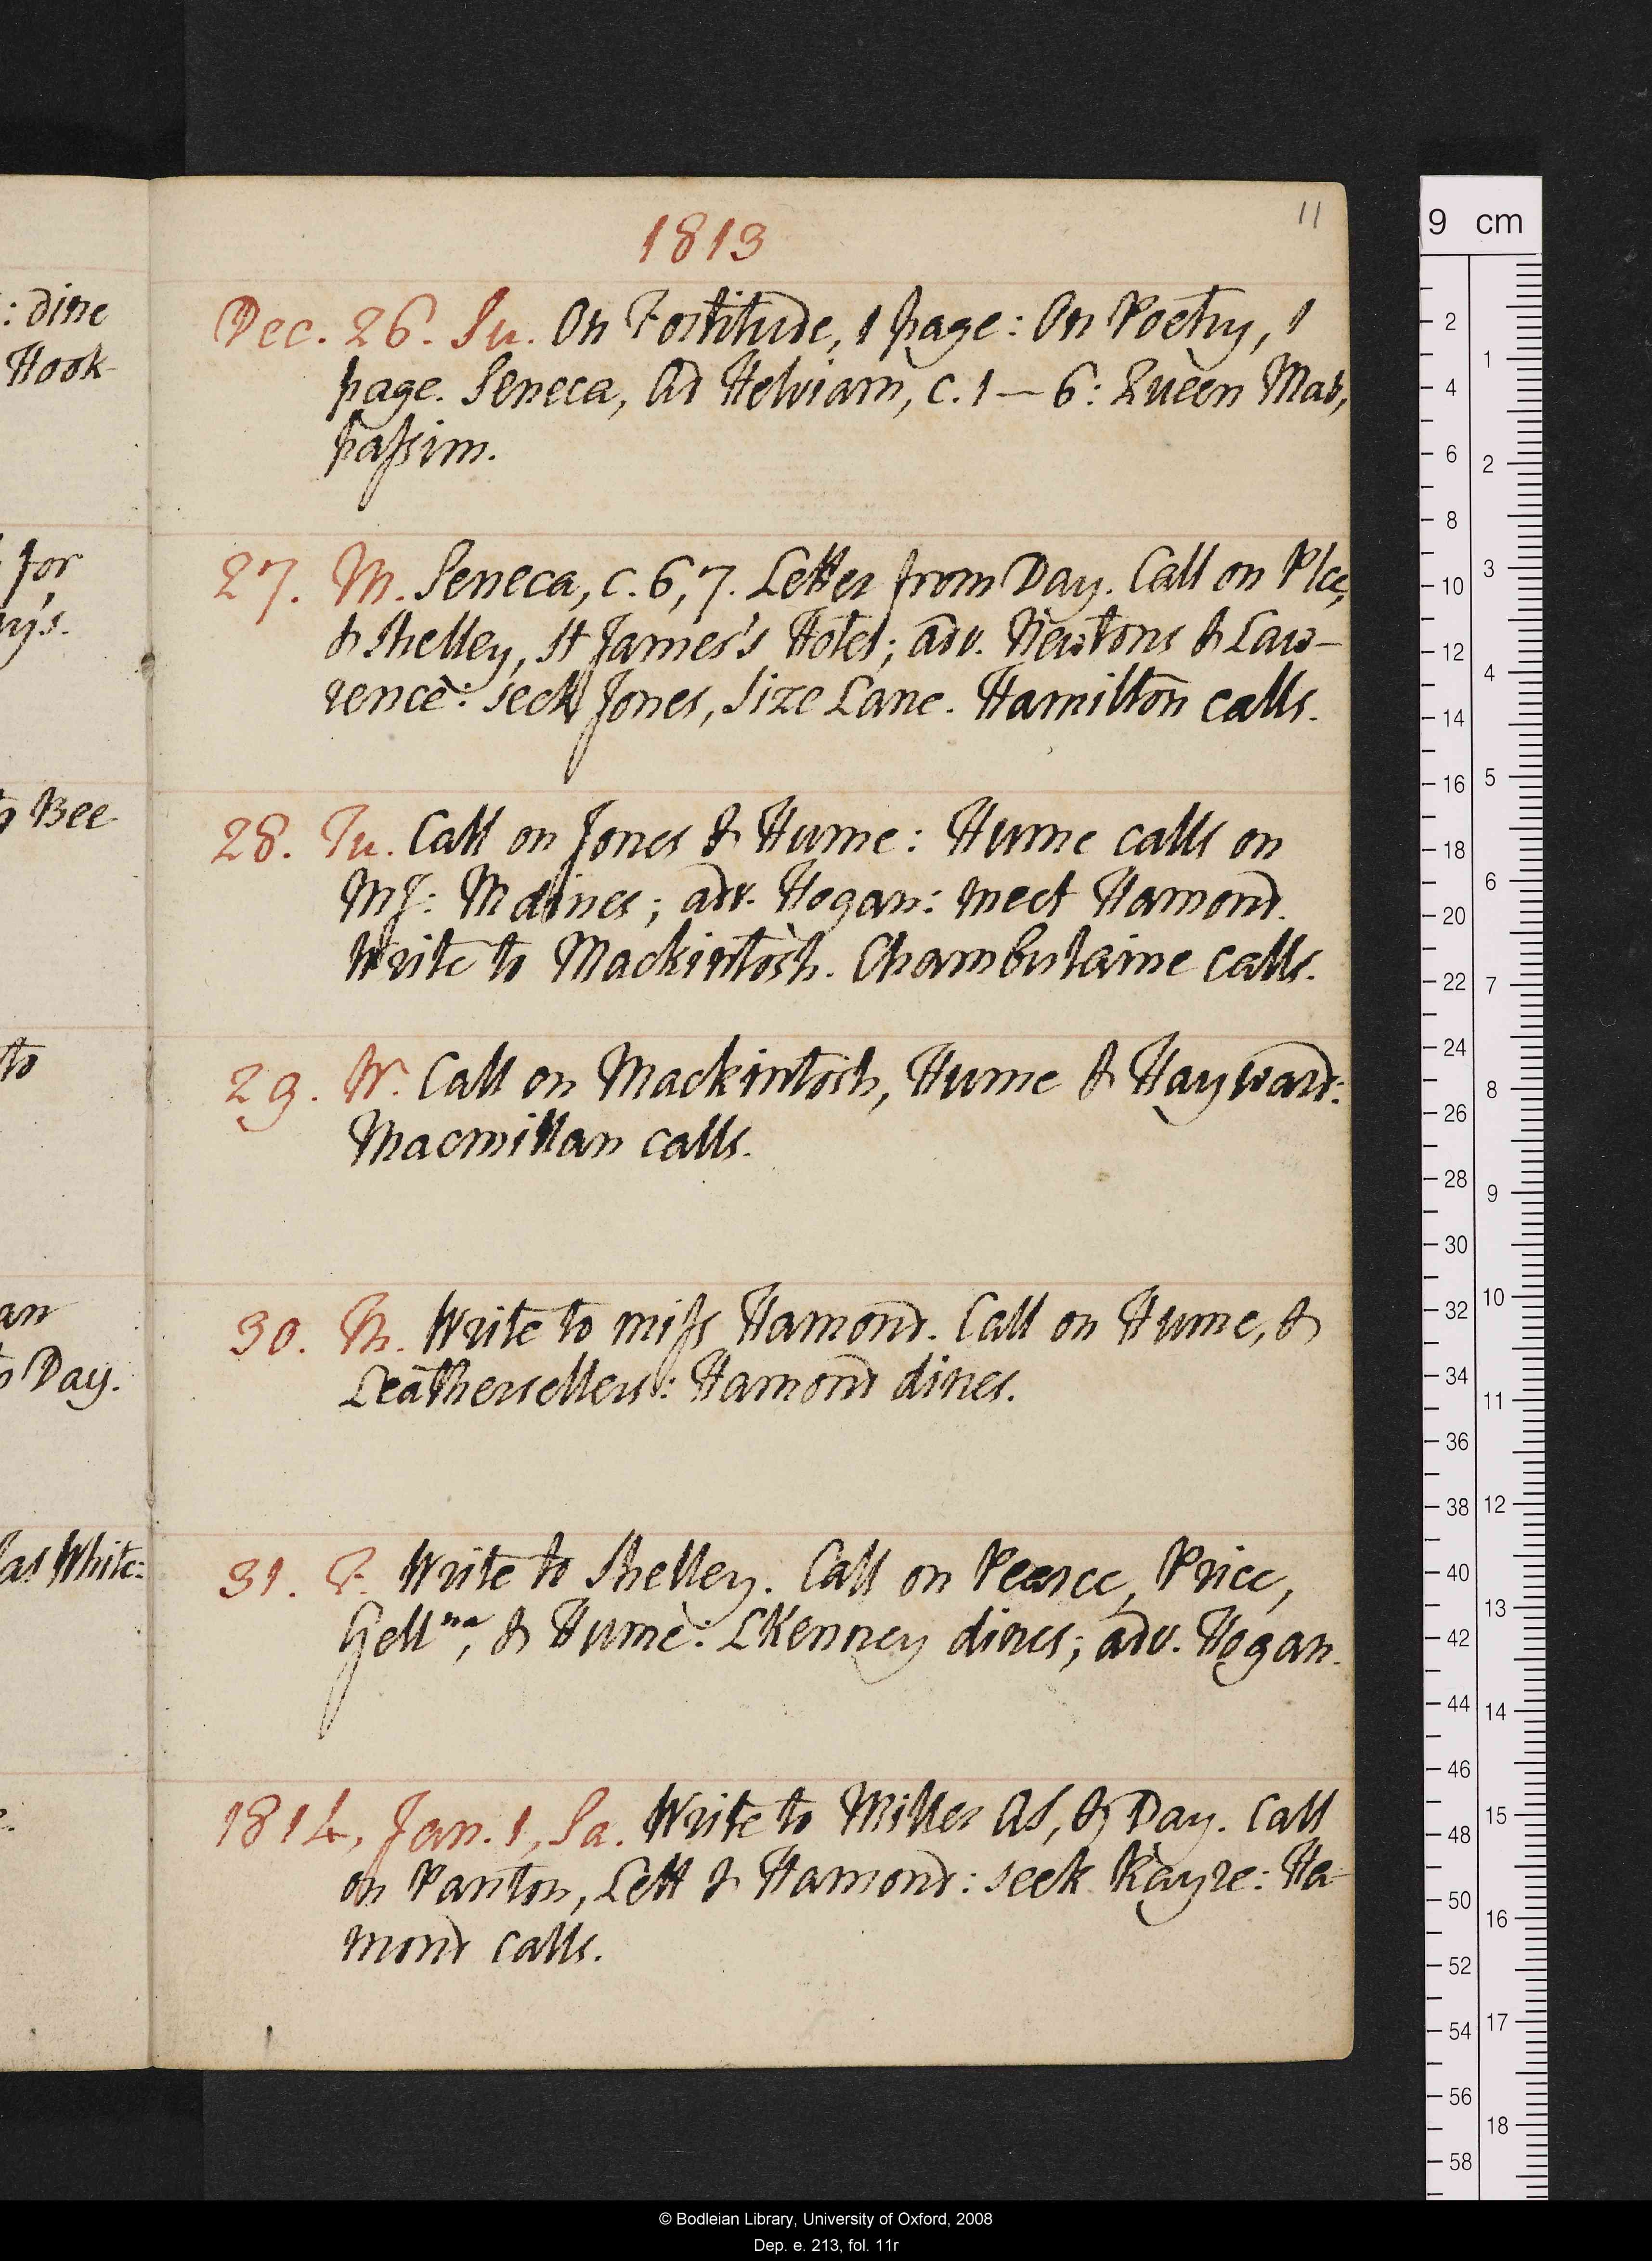 : dine
Hook-
for
ys.
o Bee
to
an
o Day.
las White-
1813
11
Dec. 26. Su. On Fortitude, 1 page: On Poetry, 1
page. Seneca, Ad Helviam, c. 1—6: Queen Mab,
passim.
27. M. Seneca, c. 6, 7. Letter from Day. Call on Plce,
& Shelley, St James's Hotel; adv. Newtons & Law-
rence: seek Jones, Size Lane. Hamilton calls.
28. Tu. Call on Jones & Hume: Hume calls on
MJ: M dines; adv. Hogan: meet Hamond.
Write to Mackintosh. Chamberlaine calls.
29. W. Call on Mackintosh, Hume & Hayward:
Macmillan calls.
30. Th. Write to miss Hamond. Call on Hume, &
Leathersellers: Hamond dines.
31. F. Write to Shelley. Call on Pearce, Price,
Gell na, & Hume: LKenney dines; adv. Hogan.
1814, Jan. 1, Sa. Write to Miller AS, & Day. Call
on Panton, Lett & Hamond: seek Kayze: Ha-
mond calls.
9 cm
2
4
6
8
10
12
14
16
18
20
22
24
26
28
30
32
34
36
38
40
42
44
46
48
50
52
54
56
58
1
2
3
4
5
6
7
8
9
10
11
12
13
14
15
16
17
18
© Bodleian Library, University of Oxford, 2008
Dep. e. 213, fol. 11r